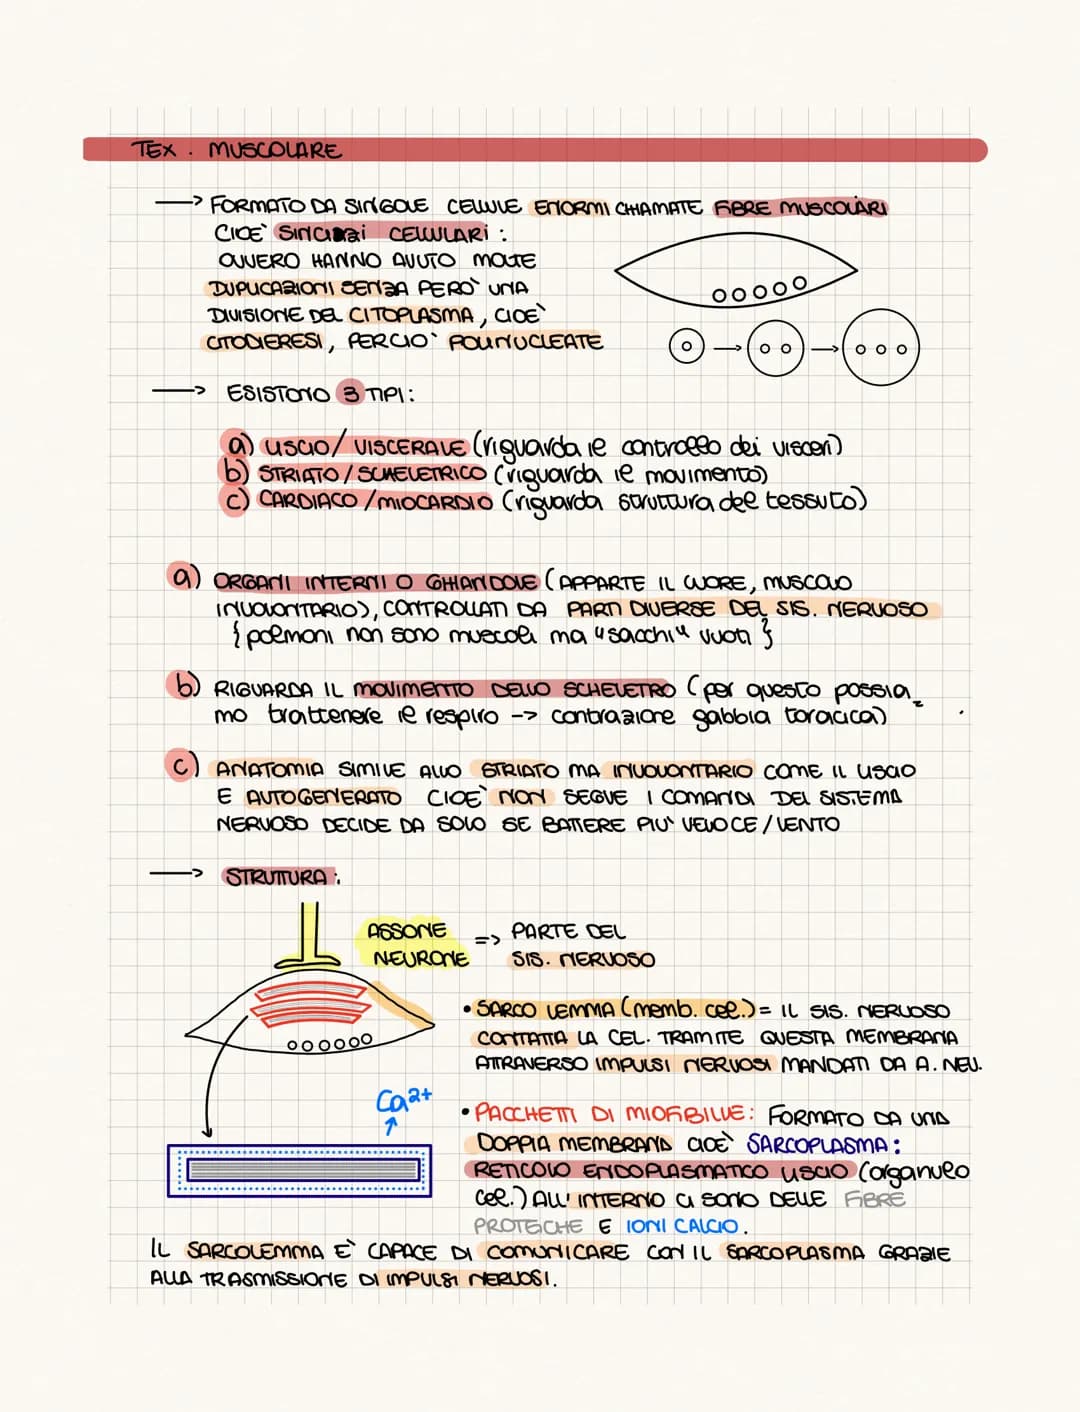 TEX. MUSCOLARE
→ FORMATO DA SINGOLE CELLULE ENORMI CHIAMATE FIBRE MUSCOLARI
CIOE` SINCIZI CELLULARI:
OVVERO HANNO AVUTO MOLTE
DUPLICAZIONI SENZA PERO` UNA
DIVISIONE DEL CITOPLASMA, CIOE`
CITODIERESI, PERCIO` POLINUCLEATE
→ ESISTONO 3 TIPI:
a) LISCIO/VISCERALE (riguarda il controllo dei visceri)
b) STRIATO/SCHELETRICO (riguarda il movimento)
c) CARDIACO/MIOCARDIO (riguarda struttura del tessuto)
a) ORGANI INTERNI O GHIANDOLE (APPARTE IL CUORE, MUSCOLO
INVOLONTARIO), CONTROLLATI DA PARTI DIVERSE DEL SIS. NERVOSO
{polmoni non sono muscoli ma "sacchi" vuoti}
b) RIGUARDA IL MOVIMENTO DELLO SCHELETRO (per questo possia=
mo trattenere il respiro -> contrazione gabbia toracica)
c) ANATOMIA SIMILE ALLO STRIATO MA INVOLONTARIO COME IL LISCIO
E AUTOGENERATO CIOE` NON SEGUE I COMANDI DEL SISTEMA
NERVOSO DECIDE DA SOLO SE BATTERE PIU` VELOCE/LENTO
→ STRUTTURA:
ASSONE => PARTE DEL
NEURONE SIS. NERVOSO
• SARCO LEMMA (memb. cel.) = IL SIS. NERVOSO
CONTATTA LA CEL. TRAMITE QUESTA MEMBRANA
ATTRAVERSO IMPULSI NERVOSI MANDATI DA A. NEU.
Ca2+
• PACCHETTI DI MIOFIBILLE: FORMATO DA UNA
DOPPIA MEMBRANA CIOE` SARCOPLASMA:
RETICOLO ENDOPLASMATICO LISCIO (organulo
cel.) ALL'INTERNO CI SONO DELLE FIBRE
PROTEICHE E IONI CALCIO.
IL SARCOLEMMA E` CAPACE DI COMUNICARE CON IL SARCOPLASMA GRAZIE
ALLA TRASMISSIONE DI IMPULSI NERVOSI.